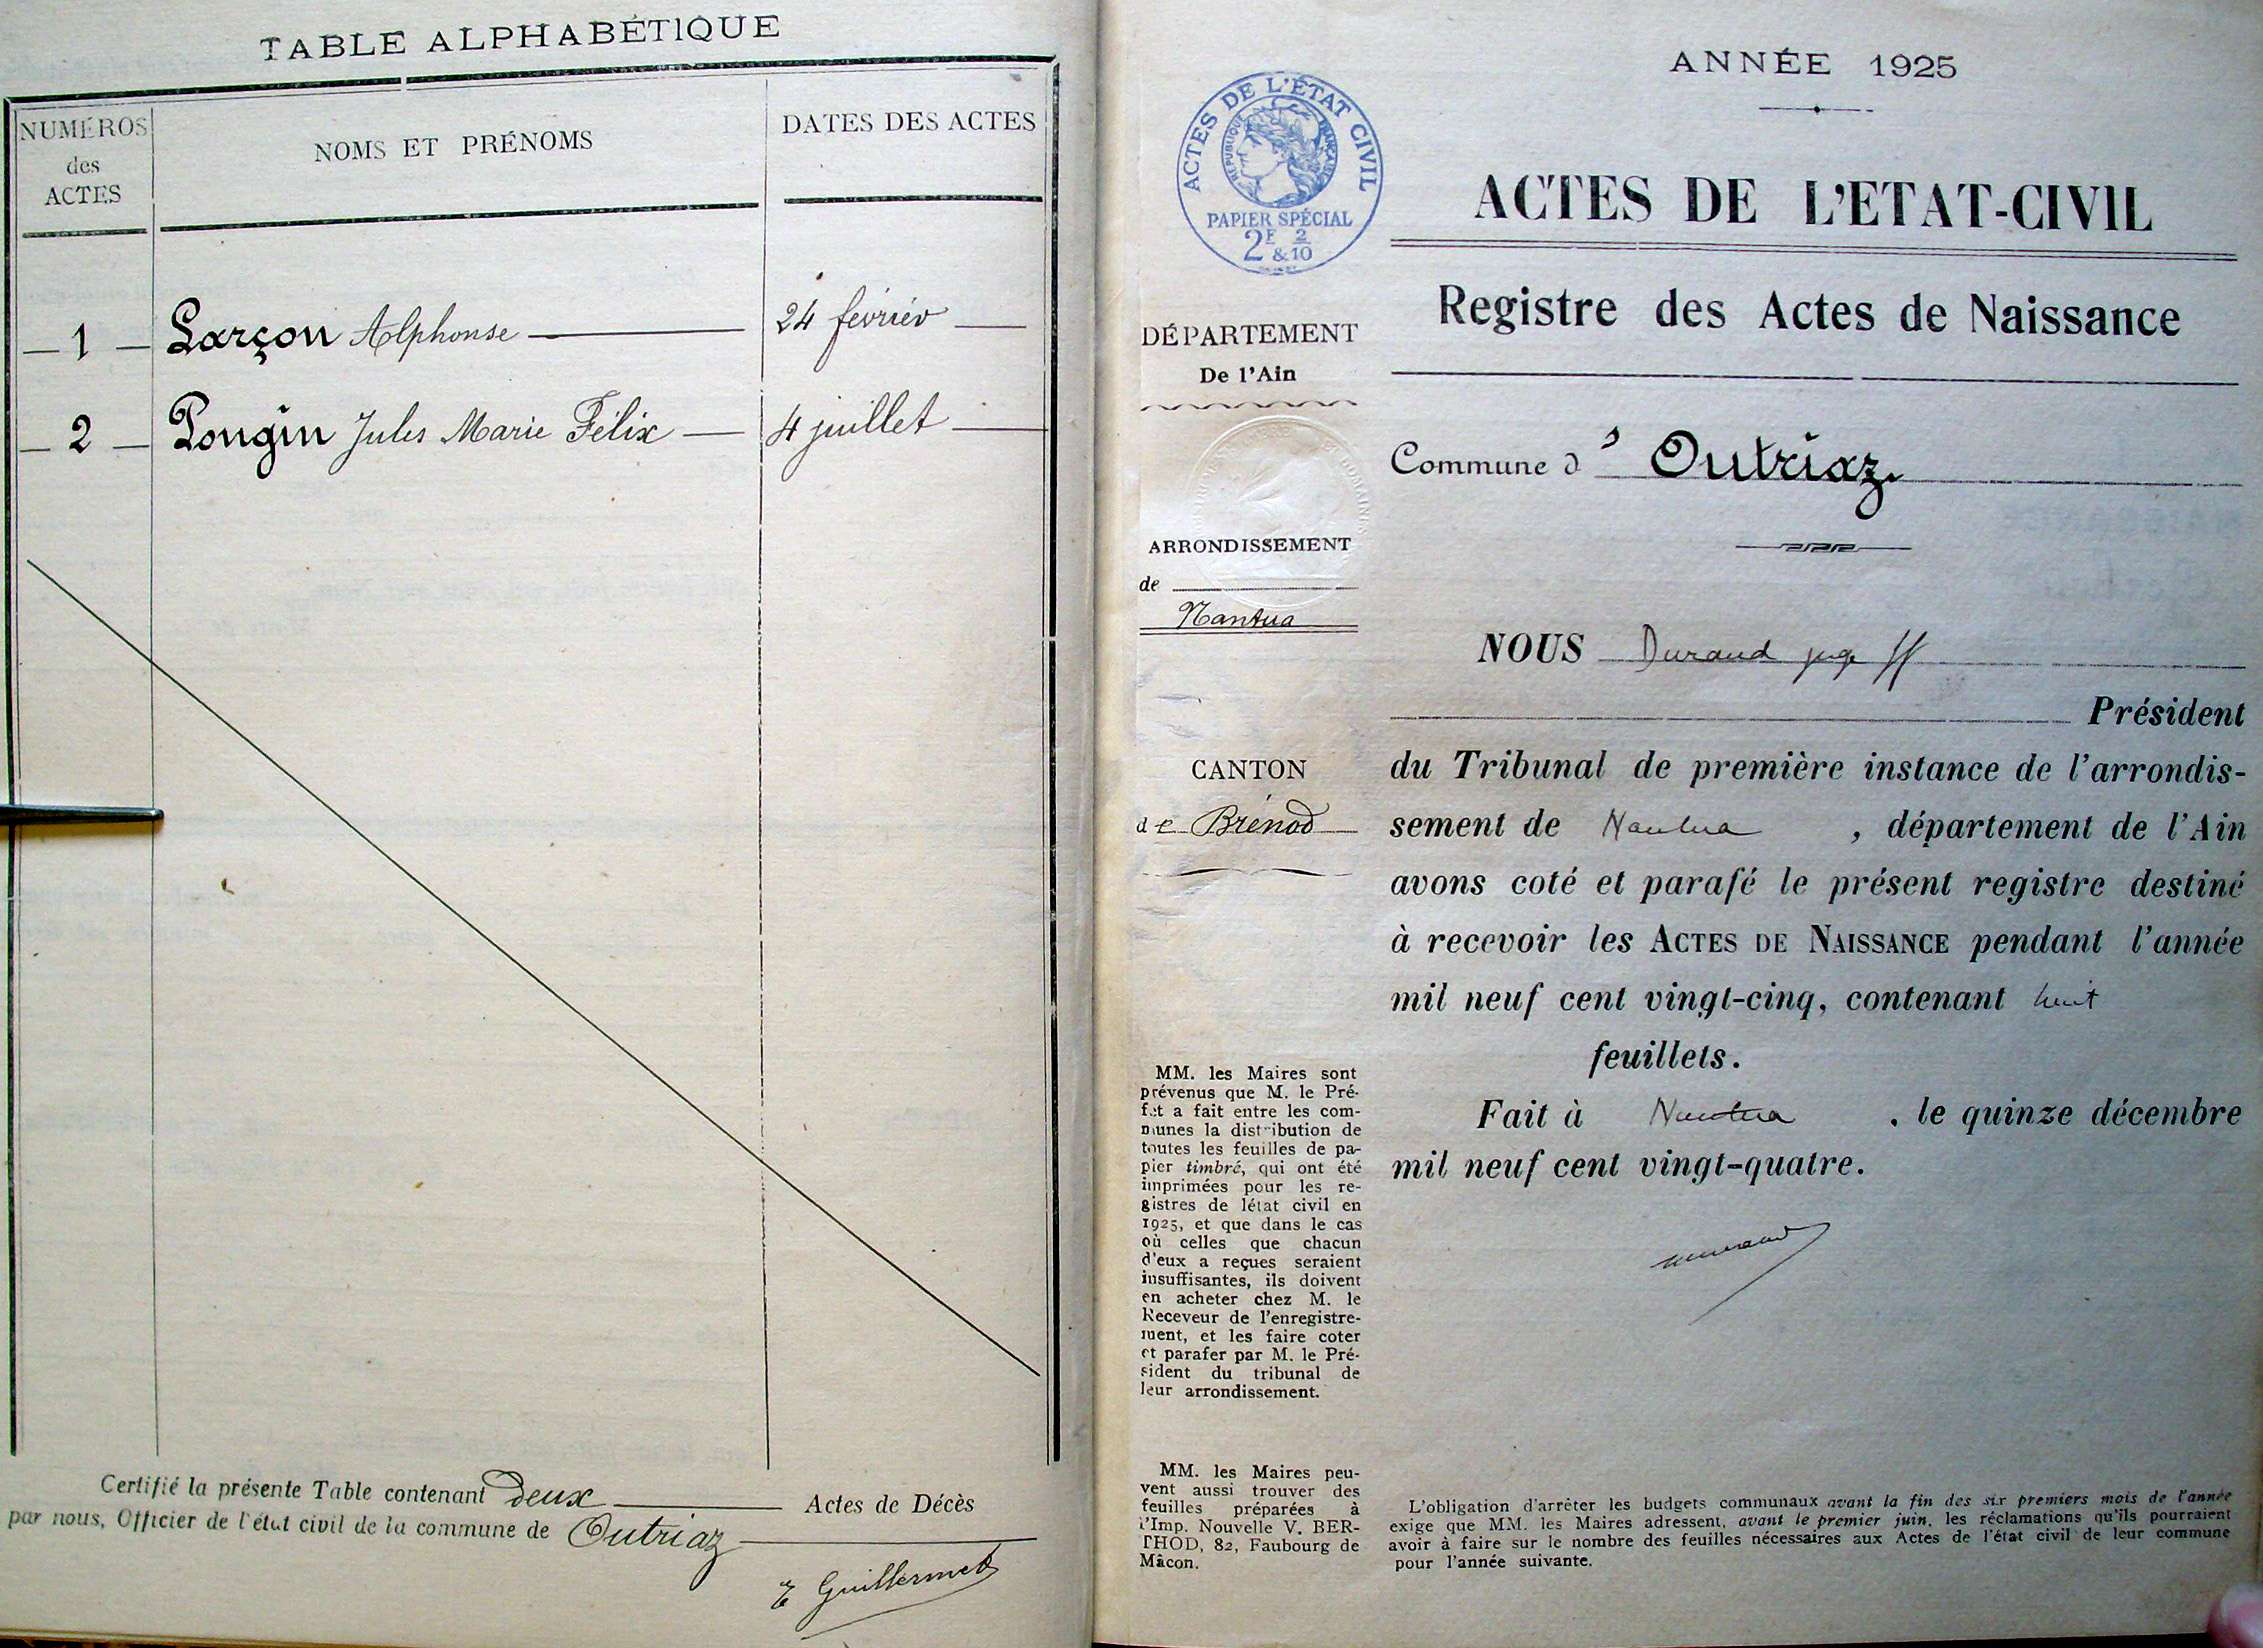 TABLE ALPHABÉTIQUE
NUMÉROS
des
ACTES
NOMS ET PRÉNOMS
DATES DES ACTES
1 Larçon Alphonse 24 février
2 Pongin Jules Marie Félix 4 juillet
Certifié la présente Table contenant deux Actes de Décès
par nous, Officier de l'état civil de la commune de Outriaz
E Guillermet
ANNÉE 1925
ACTES DE L'ÉTAT CIVIL
RÉPUBLIQUE FRANÇAISE
PAPIER SPÉCIAL
2F & 2/10
ACTES DE L'ETAT-CIVIL
Registre des Actes de Naissance
DÉPARTEMENT
De l'Ain
Commune d' Outriaz
ARRONDISSEMENT
de
Nantua
CANTON
de Brénod
NOUS Durand juge ff
Président
du Tribunal de première instance de l'arrondis-
sement de Nantua, département de l'Ain
avons coté et parafé le présent registre destiné
à recevoir les ACTES DE NAISSANCE pendant l'année
mil neuf cent vingt-cinq, contenant huit
feuillets.
Fait à Nantua, le quinze décembre
mil neuf cent vingt-quatre.
MM. les Maires sont
prévenus que M. le Pré-
fet a fait entre les com-
munes la distribution de
toutes les feuilles de pa-
pier timbré, qui ont été
imprimées pour les re-
gistres de létat civil en
1925, et que dans le cas
où celles que chacun
d'eux a reçues seraient
insuffisantes, ils doivent
en acheter chez M. le
Receveur de l'enregistre-
ment, et les faire coter
et parafer par M. le Pré-
sident du tribunal de
leur arrondissement.
MM. les Maires peu-
vent aussi trouver des
feuilles préparées à
l'Imp. Nouvelle V. BER-
THOD, 82, Faubourg de
Mâcon.
L'obligation d'arrêter les budgets communaux avant la fin des six premiers mois de l'année
exige que MM. les Maires adressent, avant le premier juin, les réclamations qu'ils pourraient
avoir à faire sur le nombre des feuilles nécessaires aux Actes de l'état civil de leur commune
pour l'année suivante.